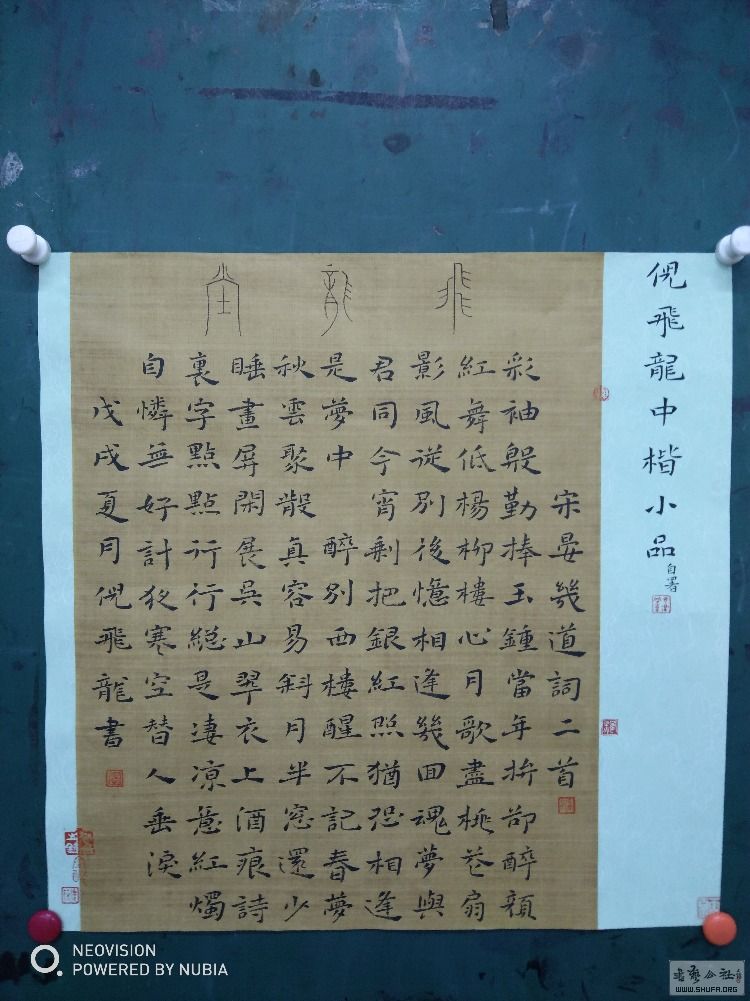 倪飛龍中楷小品
自署
飛龍
宋晏幾道詞二首
彩袖殷勤捧玉鍾當年拚却醉顏
紅舞低楊柳樓心月歌盡桃花扇
影風從別後憶相逢幾回魂夢與
君同今宵剩把銀紅照猶恐相逢
是夢中 醉別西樓醒不記春夢
秋雲聚散真容易斜月半窓還少
睡畫屏閑展吳山翠衣上酒痕詩
裏字點點行行總是凄凉意紅燭
自憐無好計夜寒空替人垂淚
戊戌夏月倪飛龍書
NEOVISION
POWERED BY NUBIA
WWW.SHUFA.ORG